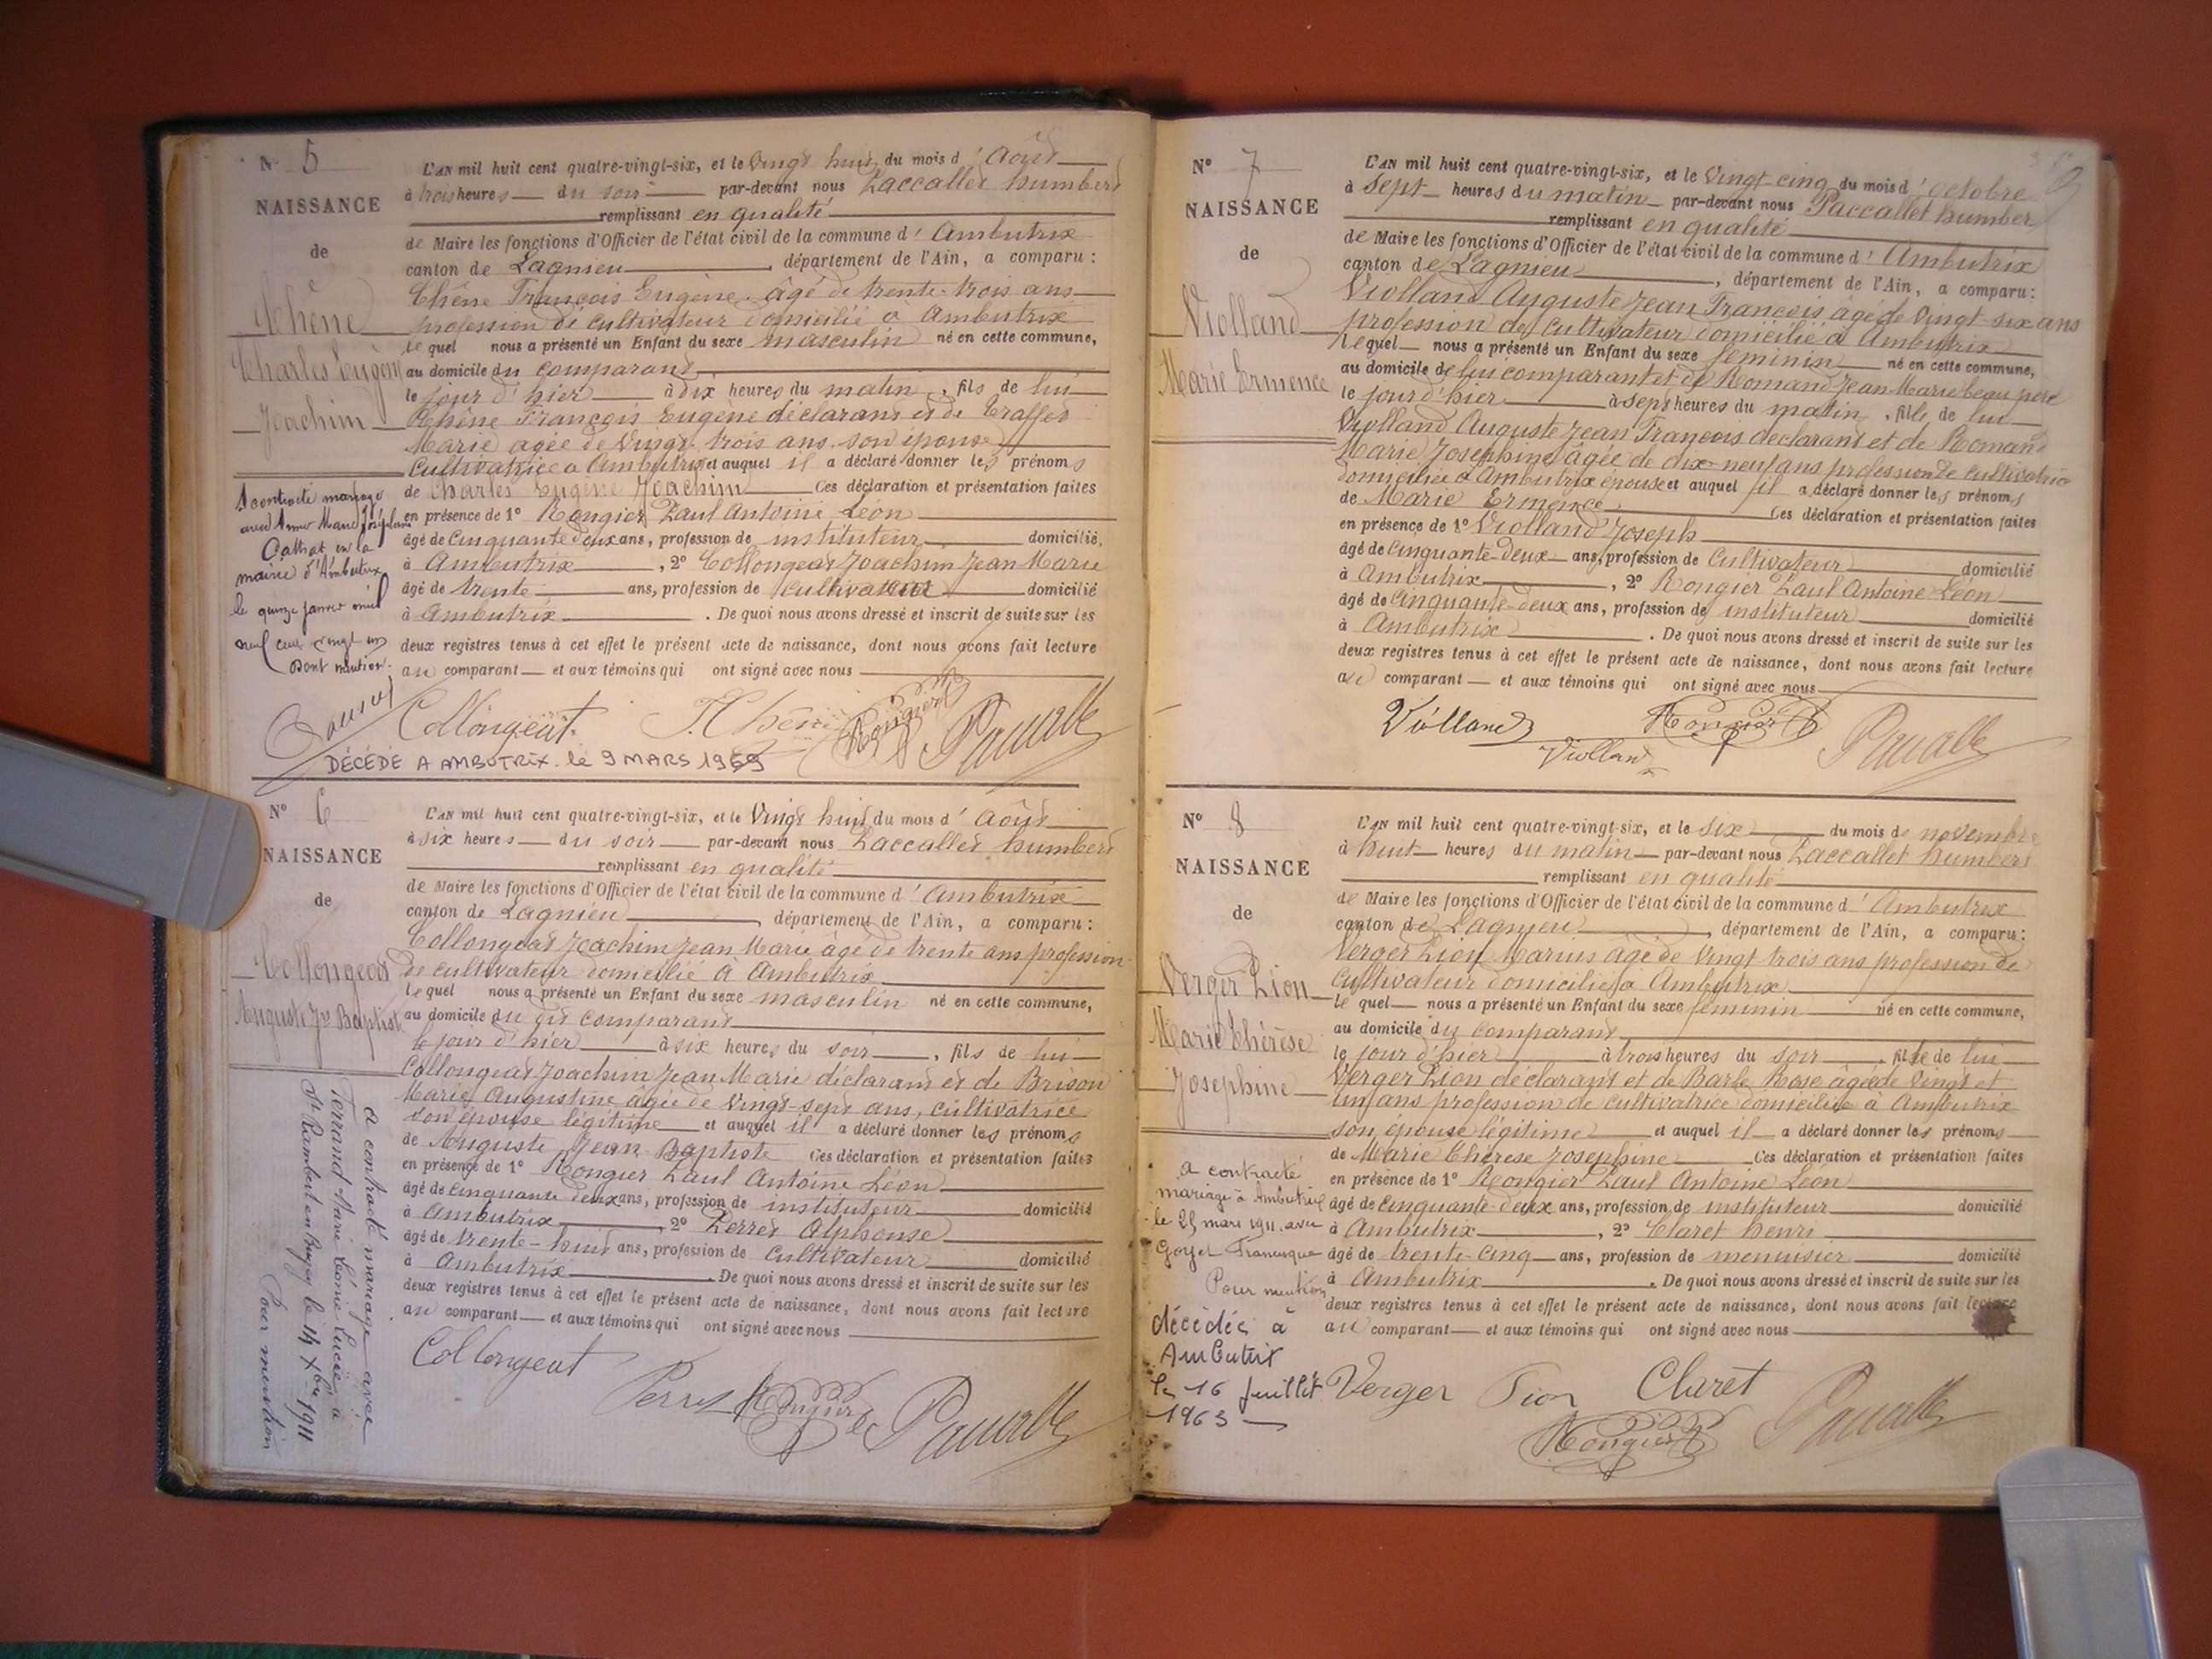 N° 5
NAISSANCE
de
Chêne
Charles Eugène
Joachim
A contracté mariage
avec Anne Marie Joséphine
en la
mairie d'Ambutrix
le quinze janvier mil
neuf cent vingt un
Dont mention.
L'AN mil huit cent quatre-vingt-six, et le Vingt huit du mois d' Août
à trois heures du soir par-devant nous Paccallet humbert
remplissant en qualité
de Maire les fonctions d'Officier de l'état civil de la commune d' Ambutrix
canton de Lagnieu, département de l'Ain, a comparu :
Chêne François Eugène âgé de trente-trois ans
profession de cultivateur domicilié à Ambutrix
lequel nous a présenté un Enfant du sexe masculin né en cette commune,
au domicile du comparant
le jour d'hier à dix heures du matin, fils de lui
Chêne François Eugène déclarant et de Traffet
Marie agée de Vingt-trois ans son épouse
Cultivatrice à Ambutrix et auquel il a déclaré donner les prénoms
de Charles Eugène Joachim Ces déclaration et présentation faites
en présence de 1° Rongier Paul Antoine Léon
âgé de Cinquante deux ans, profession de instituteur domicilié,
à Ambutrix, 2° Collongeat Joachim Jean Marie
âgé de trente ans, profession de cultivateur domicilié
à Ambutrix. De quoi nous avons dressé et inscrit de suite sur les
deux registres tenus à cet effet le présent acte de naissance, dont nous avons fait lecture
au comparant et aux témoins qui ont signé avec nous
Collongeat F. Chêne Rongier Paccallet
DÉCÉDÉ A AMBUTRIX le 9 MARS 1969
N° 6
NAISSANCE
de
Collongeat
Auguste Jn Baptiste
a contracté mariage avec
Ferrand Marie Léonie Lucie à
St Rambert en Bugey le 14 Xbre 1911
Pour mention
L'AN mil huit cent quatre-vingt-six, et le Vingt huit du mois d' Août
à six heures du soir par-devant nous Paccallet humbert
remplissant en qualité
de Maire les fonctions d'Officier de l'état civil de la commune d' Ambutrix
canton de Lagnieu, département de l'Ain, a comparu :
Collongeat Joachim Jean Marie âgé de trente ans profession
de cultivateur domicilié à Ambutrix
lequel nous a présenté un Enfant du sexe masculin né en cette commune,
au domicile du dit comparant
le jour d'hier à six heures du soir, fils de lui
Collongeat Joachim Jean Marie déclarant et de Brison
Marie Augustine agée de Vingt-sept ans, cultivatrice
son épouse légitime et auquel il a déclaré donner les prénoms
de Auguste Jean Baptiste Ces déclaration et présentation faites
en présence de 1° Rongier Paul Antoine Léon
âgé de Cinquante deux ans, profession de instituteur domicilié
à Ambutrix, 2° Perret Alphonse
âgé de trente-huit ans, profession de Cultivateur domicilié
à Ambutrix. De quoi nous avons dressé et inscrit de suite sur les
deux registres tenus à cet effet le présent acte de naissance, dont nous avons fait lecture
au comparant et aux témoins qui ont signé avec nous
Collongeat Perret Rongier Paccallet
N° 7
NAISSANCE
de
Violland
Marie Ermence
L'AN mil huit cent quatre-vingt-six, et le Vingt-cinq du mois d' octobre
à Sept heures du matin par-devant nous Paccallet humbert
remplissant en qualité
de Maire les fonctions d'Officier de l'état civil de la commune d' Ambutrix
canton de Lagnieu, département de l'Ain, a comparu :
Violland Auguste Jean François âgé de Vingt-six ans
profession de cultivateur domicilié à Ambutrix
lequel nous a présenté un Enfant du sexe féminin né en cette commune,
au domicile de lui comparant et de Romand Jean Marie beau père
le jour d'hier à sept heures du matin, fille de lui
Violland Auguste Jean François déclarant et de Romand
Marie Josephine agée de dix-neuf ans profession de cultivatrice
domiciliée à Ambutrix épouse et auquel il a déclaré donner les prénoms
de Marie Ermence Ces déclaration et présentation faites
en présence de 1° Violland Joseph
âgé de Cinquante-deux ans, profession de Cultivateur domicilié
à Ambutrix, 2° Rongier Paul Antoine Léon
âgé de Cinquante-deux ans, profession de instituteur domicilié
à Ambutrix. De quoi nous avons dressé et inscrit de suite sur les
deux registres tenus à cet effet le présent acte de naissance, dont nous avons fait lecture
au comparant et aux témoins qui ont signé avec nous
Violland Rongier Paccallet
Violland
N° 8
NAISSANCE
de
Verger Lion
Marie Thérèse
Josephine
a contracté
mariage à Ambutrix
le 25 mars 1911 avec
Goyet Francisque
Pour mention
décédée à
Ambutrix
le 16 juillet
1963
L'AN mil huit cent quatre-vingt-six, et le Six du mois de novembre
à huit heures du matin par-devant nous Paccallet humbert
remplissant en qualité
de Maire les fonctions d'Officier de l'état civil de la commune d' Ambutrix
canton de Lagnieu, département de l'Ain, a comparu :
Verger Lion Marius âgé de Vingt trois ans profession de
cultivateur domicilié à Ambutrix
lequel nous a présenté un Enfant du sexe féminin né en cette commune,
au domicile du comparant
le jour d'hier à trois heures du soir, fille de lui
Verger Lion déclarant et de Barbe Rose âgée de Vingt et
un ans profession de cultivatrice domiciliée à Ambutrix
son épouse légitime et auquel il a déclaré donner les prénoms
de Marie Thérèse Josephine Ces déclaration et présentation faites
en présence de 1° Rongier Paul Antoine Léon
âgé de Cinquante-deux ans, profession de instituteur domicilié
à Ambutrix, 2° Claret henri
âgé de trente-cinq ans, profession de menuisier domicilié
à Ambutrix. De quoi nous avons dressé et inscrit de suite sur les
deux registres tenus à cet effet le présent acte de naissance, dont nous avons fait lecture
au comparant et aux témoins qui ont signé avec nous
Verger Lion Claret
Rongier Paccallet